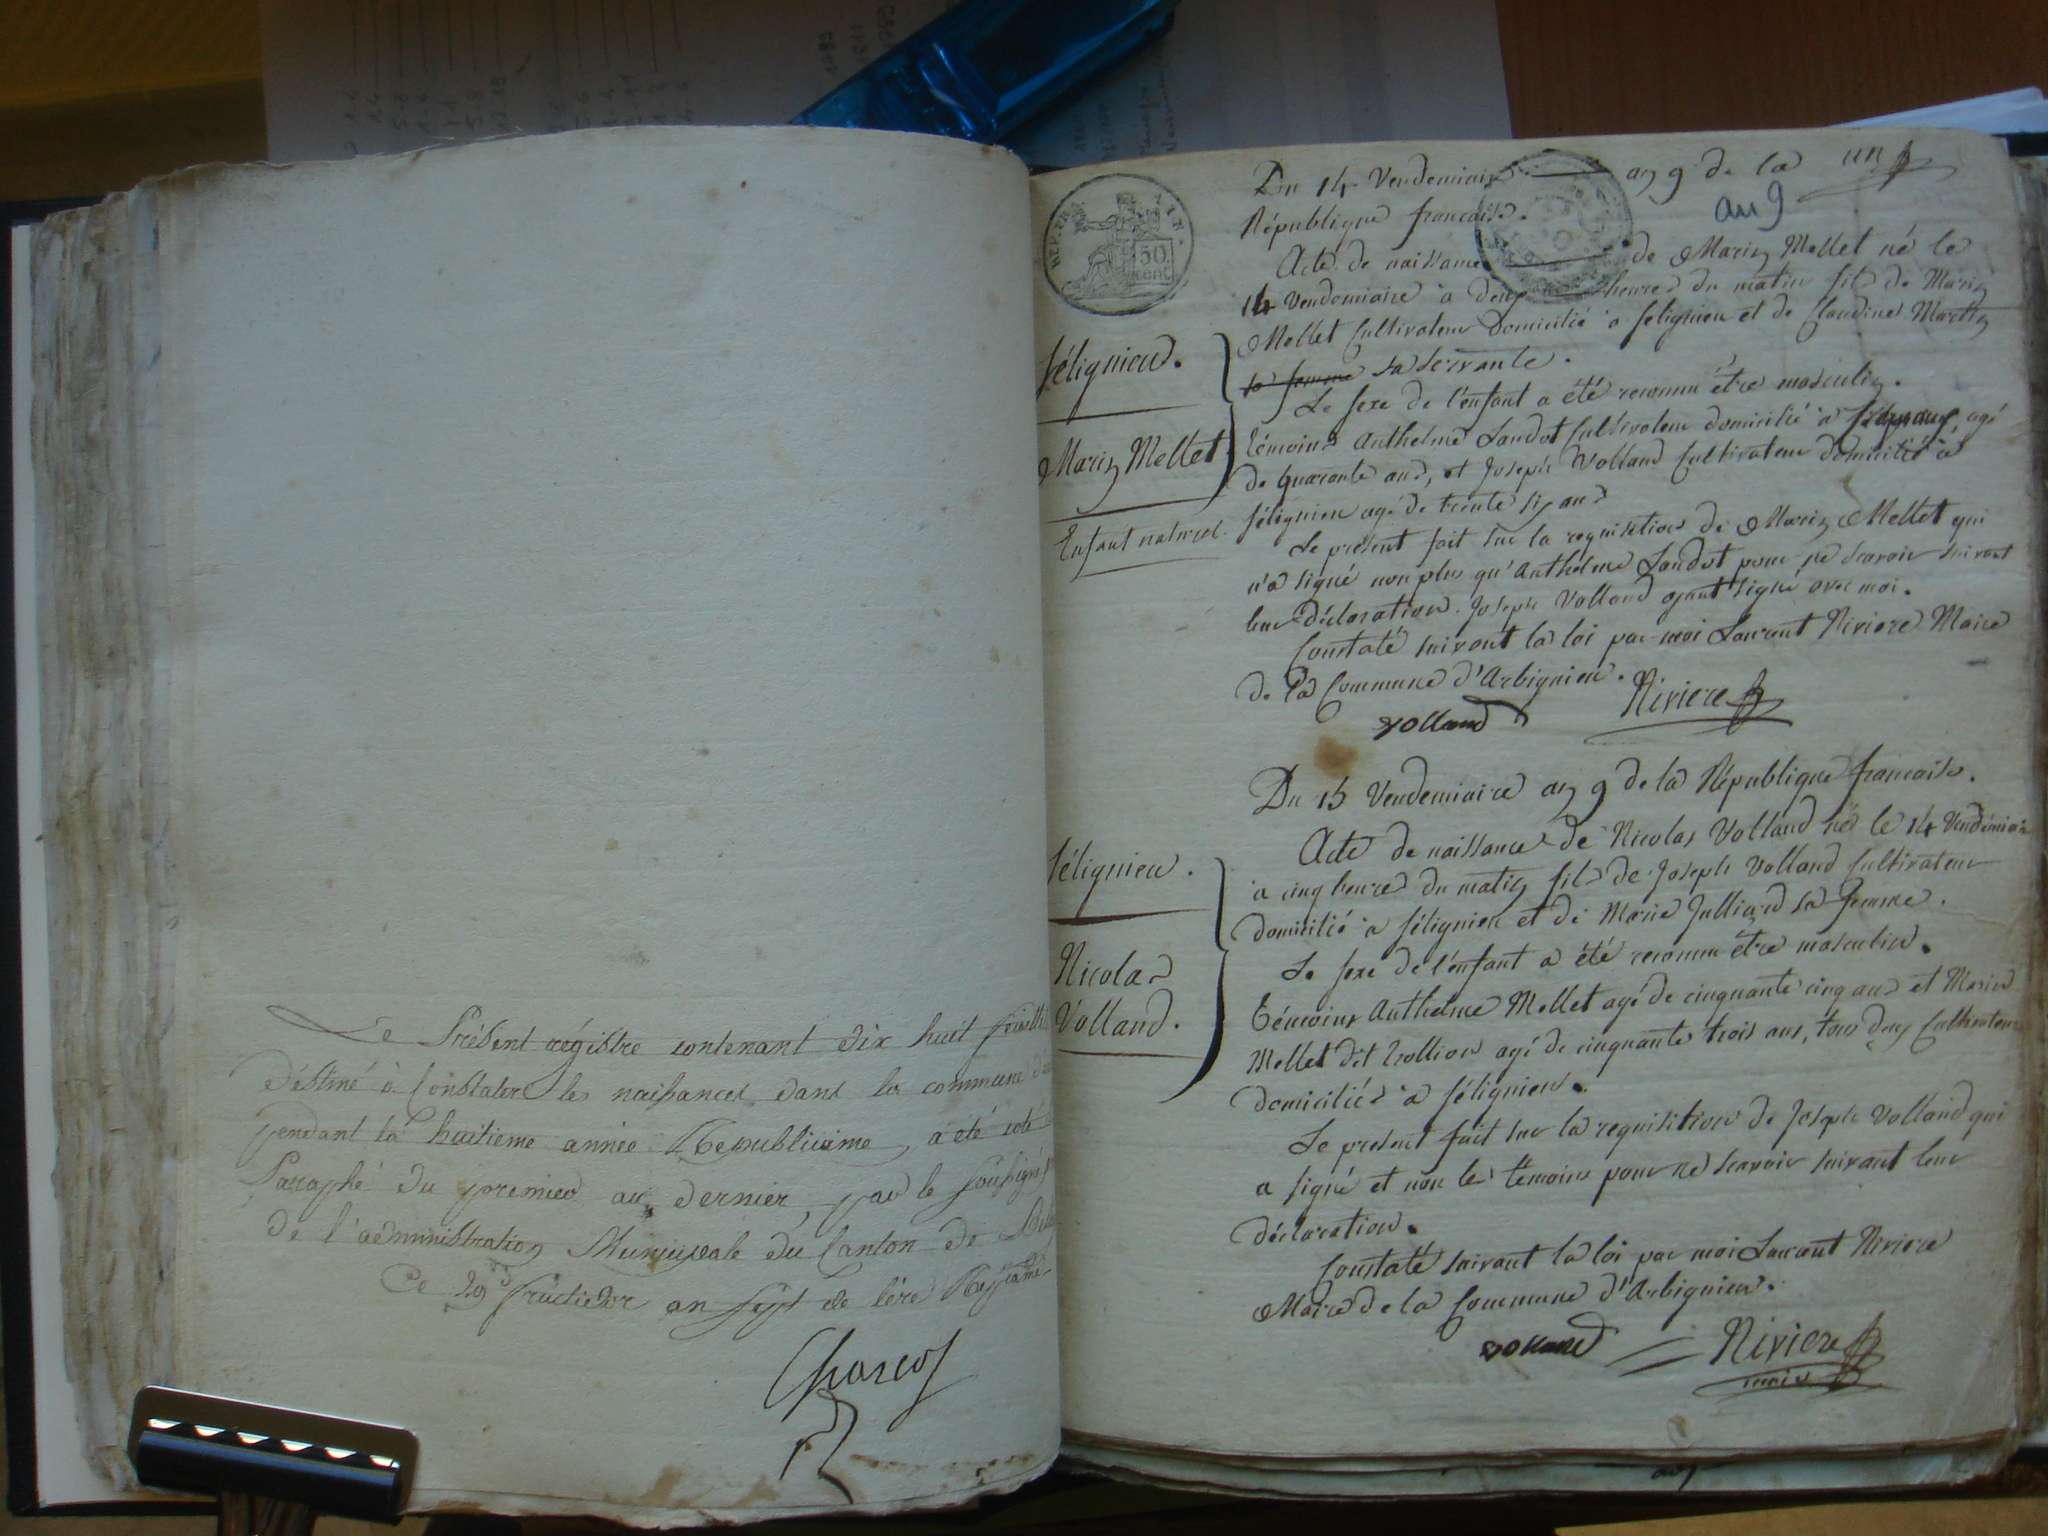 Le Présent régistre contenant dix huit feuill
déstiné à Constater les naissances dans la commune d'a
pendant la huitieme année Republicaine, a été coté
Paraphé du premier au dernier, par le soussigné
de l'administration Municipale du Canton de
Ce 29 fructidor an sept de l'ère
Charcot
REP. FRA.
50
cent
un
an 9
Du 14 Vendemiaire an 9 de la
République francaise.
Acte de naissance de Marin Mellet né le
14 Vendemiaire à deux heures du matin fils de Marin
Mellet Cultivateur domicilié à sélignieu et de Claudine Martin
sa femme sa servante.
Le sexe de l'enfant a été reconnu être masculin.
témoins Anthelme Landot Cultivateur domicilié à agé
de quarante ans, et Joseph Volland Cultivateur domicilié à
sélignieu agé de trente six ans
Le présent fait sur la requisition de Marin Mellet qui
n'a signé non plus qu'Anthelme Landot pour ne scavoir suivant
leur déclaration. Joseph Volland ayant signé avec moi.
Constaté suivant la loi par moi Laurant Riviere Maire
de la Commune d'Arbignieu.
volland Riviere
sélignieu.
Marin Mellet
Enfant naturel.
Du 15 Vendemiaire an 9 de la République francaise.
Acte de naissance de Nicolas Volland né le 14 Vendémiaire
à cinq heures du matin fils de Joseph Volland Cultivateur
domicilié à sélignieu et de Marie Julliard sa femme.
Le sexe de l'enfant a été reconnu être masculin.
témoins Anthelme Mellet agé de cinquante cinq ans et Marin
Mellet dit agé de cinquante trois ans, tous deux Cultivateurs
domiciliés à sélignieu.
Le présent fait sur la requisition de Joseph Volland qui
a signé et non les témoins pour ne scavoir suivant leur
déclaration.
Constaté suivant la loi par moi Laurant Riviere
Maire de la Commune d'Arbignieu.
volland Riviere
maire
sélignieu.
Nicolas
Volland.